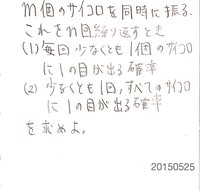 m個のサイコロを同時に振る.
これをn回繰り返すとき
(1) 毎回少なくとも1個のサイコロ
に1の目が出る確率
(2) 少なくとも1回,すべてのサイコロ
に1の目が出る確率
を求めよ.
20150525